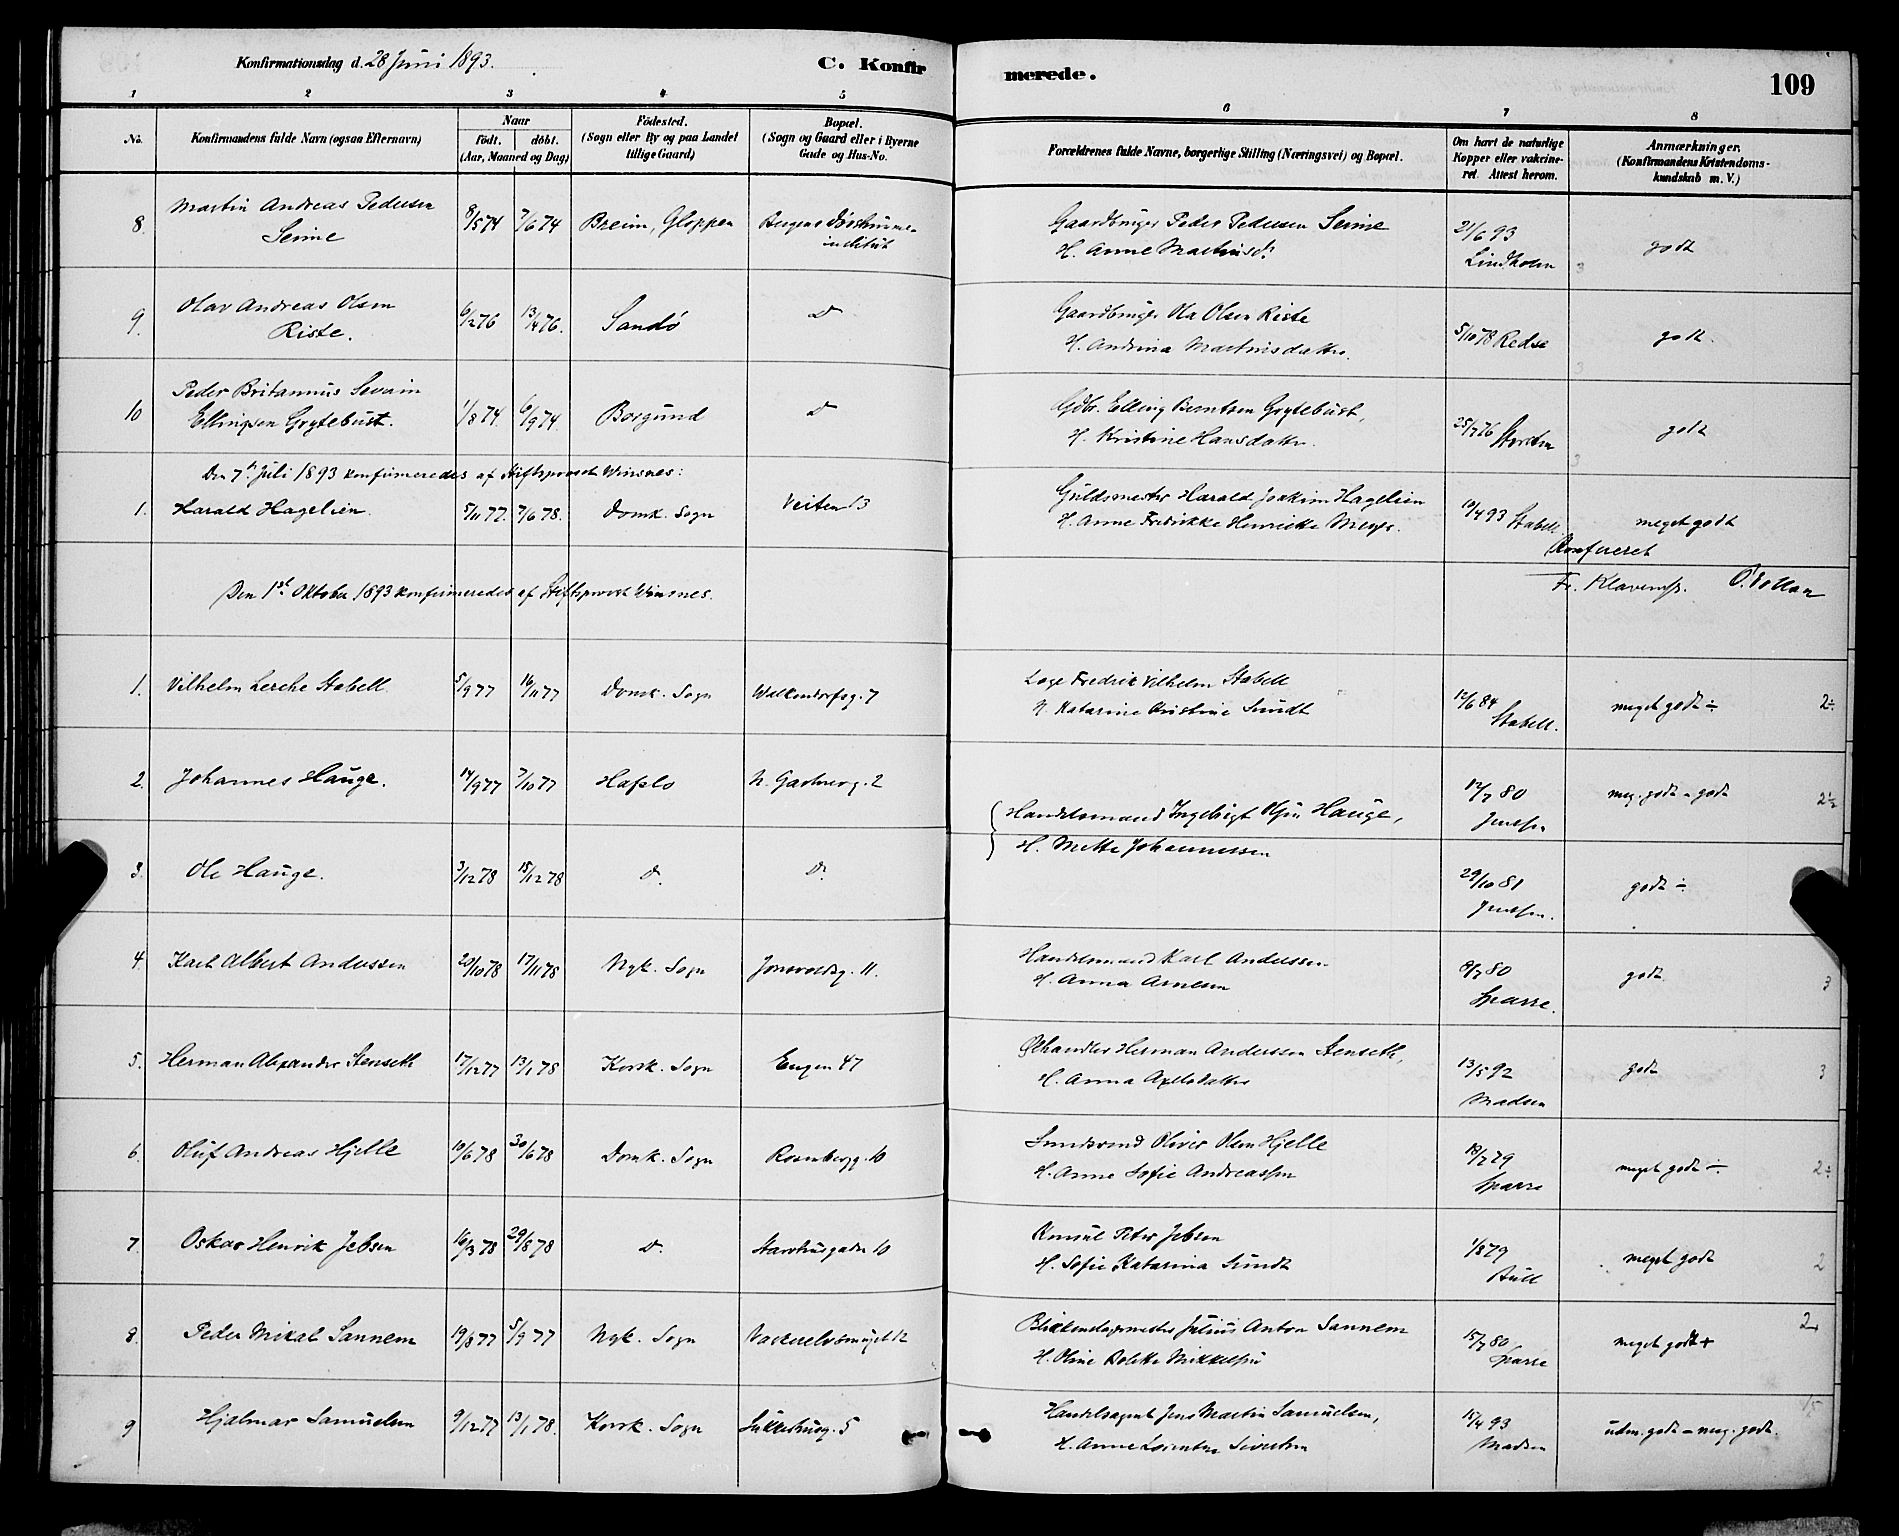 Konfirmationsdag d. 28 Juni 1893.
C. Konfirmerede.
109
1 2 3 4 5 6 7 8
No.
Konfirmandens fulde Navn (ogsaa Efternavn)
Naar
födt. döbt.
(Aar, Maaned og Dag)
Födested.
(Sogn eller By og paa Landet
tillige Gaard)
Bopæl.
(Sogn og Gaard eller i Byerne
Gade og Hus-No.
Forældrenes fulde Navne, borgerlige Stilling (Næringsvei) og Bopæl.
Om havt de naturlige
Kopper eller vakcine-
ret. Attest herom.
Anmærkninger.
(Konfirmandens Kristendoms-
kundskab m. V.)
8. Martin Andreas Pedersen
Seime
8/5 74 7/6 74 Breim, Gloppen Bergens Døvstumme-
institut
Gaardbruger Peder Pedersen Seime
H. Anne Martinsd:
21/6 93
Lindholm
godt
3
9. Olav Andreas Olsen
Riste.
6/2 76 13/4 76. Sandö D
Gaardbruger Ola Olsen Riste
H. Andrina Martinsdatter.
5/10 78 Redse
godt.
3
10 Peder Britannus Severin
Ellingsen Grytebust.
1/8 74. 6/9 74. Borgund D
Gdbr. Elling Berntsen Grytebust,
H. Kristine Hansdatter.
25/7 76
godt
3
Den 7de Juli 1893 konfirmeredes af Stiftsprovst Winsnes:
1. Harald Hagelien.
5/11 77. 7/6 78. Domk. Sogn Veiten 13
Guldsmester Harald Joakim Hagelien
H. Anne Fredrikke Henrikke Meyer.
10/4 93 Stabell.
meget godt
Konfereret
Fr. Klaveness. O. Tollan
Den 1st Oktober 1893 konfirmeredes af Stiftsprovst Winsnes.
1. Vilhelm Lerche Stabell.
5/9 77 16/11 77 Domk. Sogn Walkendorfsg. 7
Læge Fredrik Vilhelm Stabell
H. Katarine Kristine Sundt
12/6 84
Stabell.
meget godt ÷
2÷
2. Johannes Hauge.
14/9 77 7/10 77 Hafslo N. Gartnerg. 2
Handelsmand Ingebrigt Olsen Hauge,
H. Mette Johannessen
12/7 80
Jenssen
meg. godt - godt
2½
3. Ole Hauge.
3/12 78 15/12 78 D. D.
29/10 81
Jenssen.
godt ÷
4. Karl Albert Anderssen
20/10 78 17/11 78 Nyk. Sogn Jonsvoldsg. 11.
Handelsmand Karl Anderssen
H. Anna Arnesen
8/7 80
Sparre.
godt
3
5. Herman Alexander Stenseth
17/12 77 13/1 78 Korsk. Sogn Engen 47
Ølhandler Herman Anderssen Stenseth,
H. Anna Axelsdatter
13/5 92
Madsen
godt
3
6. Oluf Andreas Hjelle
10/6 78 30/6 78 Domk. Sogn Rosenbergg. 10
Oliver Olsen Hjelle
H. Anne Sofie Andreassen
18/7 79
Sparre
meget godt ÷
2÷
7. Oskar Henrik Jebsen
16/3 78 29/8 78 D. Starvhusgaden 10
Konsul Peter Jebsen
H. Sofie Katarina Sundt
1/8 79
Bull
meget godt
2
8. Peder Mikal Sannem
19/8 77 5/9 77 Nyk. Sogn Vaskerelvsmuget 12
Blikkenslagermester Julius Anton Sannem
H. Oline Bolette Mikkelsen
15/7 80
Sparre
meget godt +
2+
9 Hjalmar Samuelsen
9/12 77 13/1 78. Korsk. Sogn Sukkerhusg. 5
Handelsagent Jens Martin Samuelsen,
H. Anne Lorentze Sivertsen
15/4 93
Madsen
udm. godt - meg. godt.
1/5